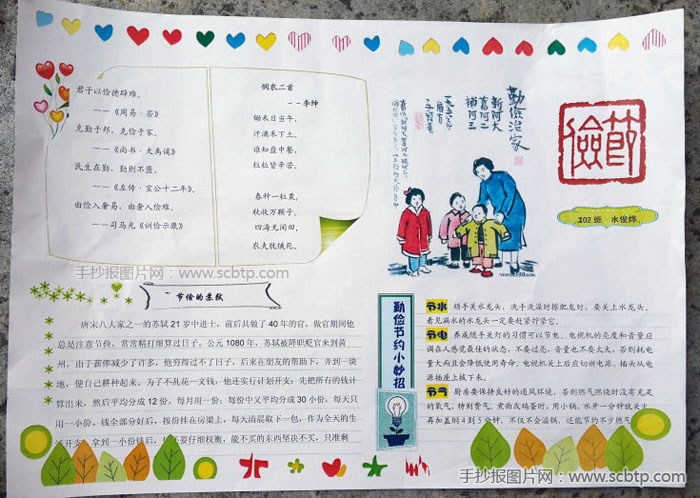 君子以俭德辟难。
——《周易·否》
克勤于邦，克俭于家。
——《尚书·大禹谟》
民生在勤，勤则不匮。
——《左传·宣公十二年》
由俭入奢易，由奢入俭难。
——司马光《训俭示康》
悯农二首
--李绅
锄禾日当午，
汗滴禾下土。
谁知盘中餐，
粒粒皆辛苦。
春种一粒粟，
秋收万颗子。
四海无闲田，
农夫犹饿死。
勤俭治家
新阿大
旧阿二
补阿三
节俭
202班 水俊烨
手抄报图片网：www.scbtp.com
节俭的苏轼
唐宋八大家之一的苏轼21岁中进士，前后共做了40年的官，做官期间他
总是注意节俭，常常精打细算过日子。公元1080年，苏轼被降职贬官来到黄
州，由于薪俸减少了许多，他穷得过不了日子，后来在朋友的帮助下，弄到一块
地，便自己耕种起来。为了不乱花一文钱，他还实行计划开支：先把所有的钱计
算出来，然后平均分成12份，每月用一份；每份中又平均分成30小份，每天只
用一小份。钱全部分好后，按份挂在房梁上，每天清晨取下一包，作为全天的生
活开支。拿到一小份钱后，他还要仔细权衡，能不买的东西坚决不买，只准剩
勤俭节约小妙招
节水 顺手关水龙头，洗手洗澡时擦肥皂时，要关上水龙头，
看见漏水的水龙头一定要赶紧拧紧它。
节电 养成随手关灯的习惯可以节电，电视机的亮度和音量应
调在人感觉最佳的状态，不要过亮，音量也不要太大，否则耗电
量大而且会降低使用寿命，电视机关上后应切断电源，插头从电
源插座上拔下来。
节气 厨房要保持良好的通风环境，否则燃气燃烧时没有充足
的氧气，特别费气，煮面或鸡蛋时，用小锅，水开一分钟就关小
再加盖焖4到5分钟，不仅不会溢锅，还能节约不少燃气
手抄报图片网：www.scbtp.com